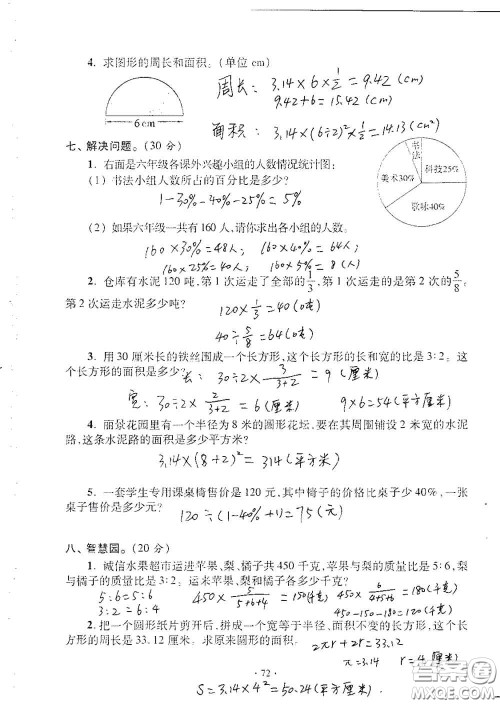 4. 求图形的周长和面积。(单位 cm)
周长: 3.14×6×1/2=9.42 (cm)
9.42+6=15.42 (cm)
6cm
面积: 3.14×(6÷2)²×1/2=14.13(cm²)
七、解决问题。(30 分)
1. 右面是六年级各课外兴趣小组的人数情况统计图:
(1) 书法小组人数所占的百分比是多少?
1-30%-40%-25%=5%
书法
科技25%
美术30%
歌咏40%
(2) 如果六年级一共有 160 人,请你求出各小组的人数。
160×30%=48人; 160×40%=64人;
160×25%=40人; 160×5%=8(人)
2. 仓库有水泥 120 吨,第 1 次运走了全部的1/3,第 1 次运走的是第 2 次的5/8。
第 2 次运走水泥多少吨?
120×1/3=40(吨)
40÷5/8=64(吨)
3. 用 30 厘米长的铁丝围成一个长方形,这个长方形的长和宽的比是 3∶2。这
个长方形的面积是多少?
长: 30÷2×3/(3+2)=9(厘米)
宽: 30÷2×2/(3+2)=6(厘米) 9×6=54(平方厘米)
4. 丽景花园里有一个半径为 8 米的圆形花坛,要在其周围铺设 2 米宽的水泥
路,这条水泥路的面积是多少平方米?
3.14×(8+2)²=314(平方米)
5. 一套学生专用课桌椅售价是 120 元,其中椅子的价格比桌子少 40%,一张
桌子售价是多少元?
120÷(1-40%+1)=75(元)
八、智慧园。(20 分)
1. 诚信水果超市运进苹果、梨、橘子共 450 千克,苹果与梨的质量比是 5∶6,梨
与橘子的质量比是 3∶2。运来苹果、梨和橘子各多少千克?
5:6=5:6
3:2=6:4
450×5/(5+6+4)=150(千克)
450×6/(4+5+6)=180(千克)
450-150-180=120(千克)
2. 把一个圆形纸片剪开后,拼成一个宽等于半径、面积不变的长方形,这个长方
形的周长是 33.12 厘米。求原来圆形的面积。
2πr+2r=33.12
π=3.14 r=4厘米
· 72 ·
S=3.14×4²=50.24(平方厘米).
答案圈
MXQE.COM